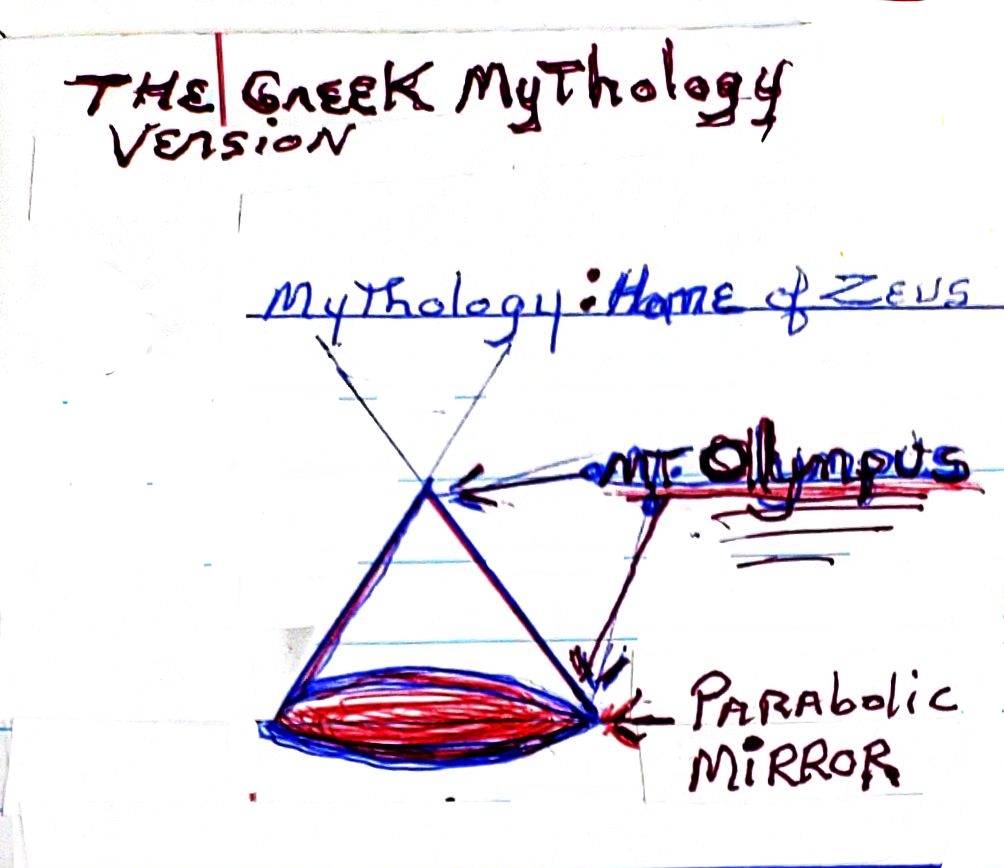 THE GREEK MyThology
VERSION
MyThology: Home of ZEUS
MT. Ollympus
PARAbolic
MiRROR